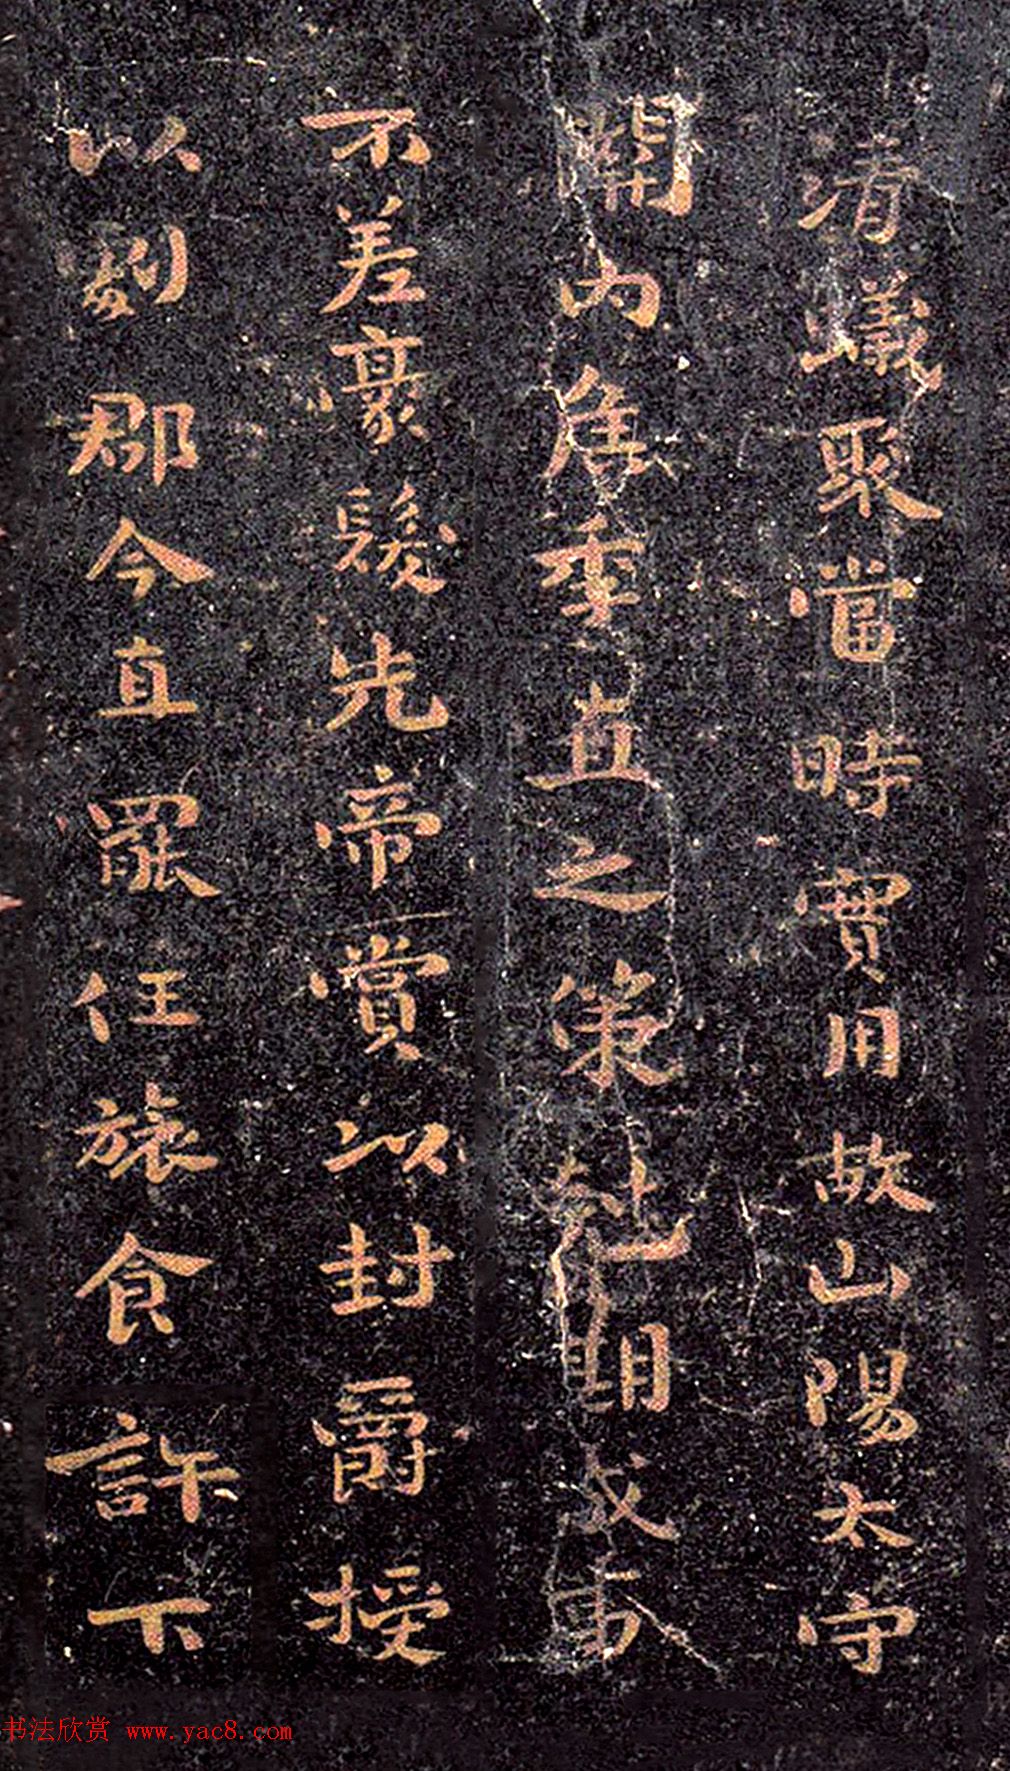 淯蟻聚當時實用故山陽太守
關內侯季直之策尅期成事
不差豪髮先帝賞以封爵授
以劇郡今直罷任旅食許下
书法欣赏 www.yac8.com